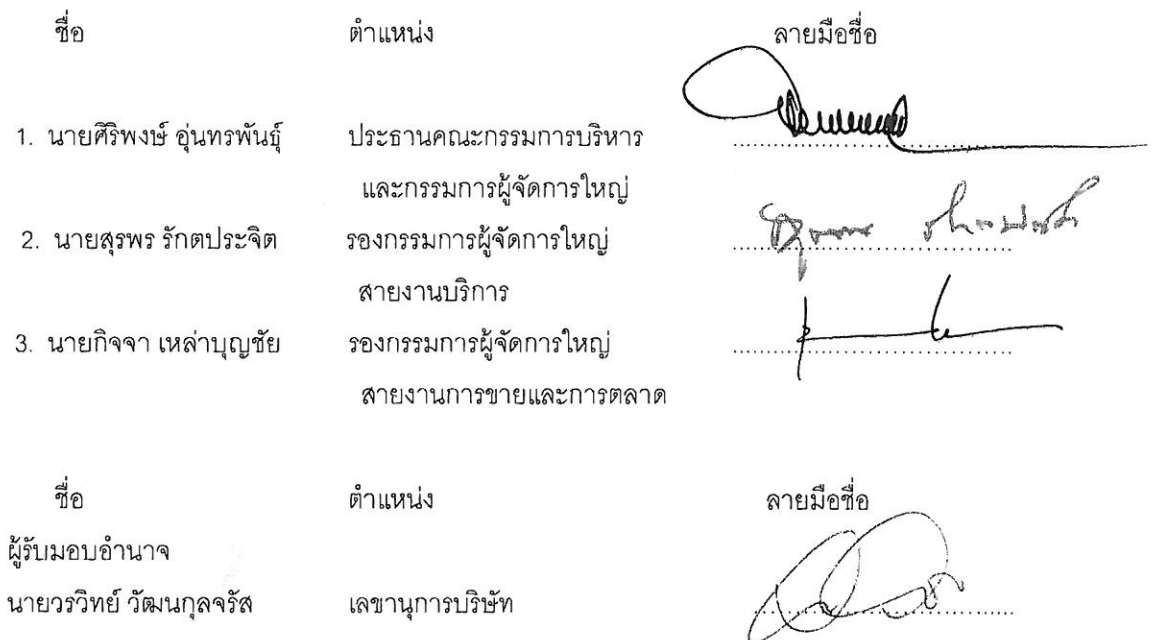 ชื่อ ตำแหน่ง ลายมือชื่อ
1. นายศิริพงษ์ อุ่นทรพันธุ์ ประธานคณะกรรมการบริหาร
และกรรมการผู้จัดการใหญ่
2. นายสุรพร รักตประจิต รองกรรมการผู้จัดการใหญ่
สายงานบริการ
3. นายกิจจา เหล่าบุญชัย รองกรรมการผู้จัดการใหญ่
สายงานการขายและการตลาด
ชื่อ ตำแหน่ง ลายมือชื่อ
ผู้รับมอบอำนาจ
นายวรวิทย์ วัฒนกุลจรัส เลขานุการบริษัท